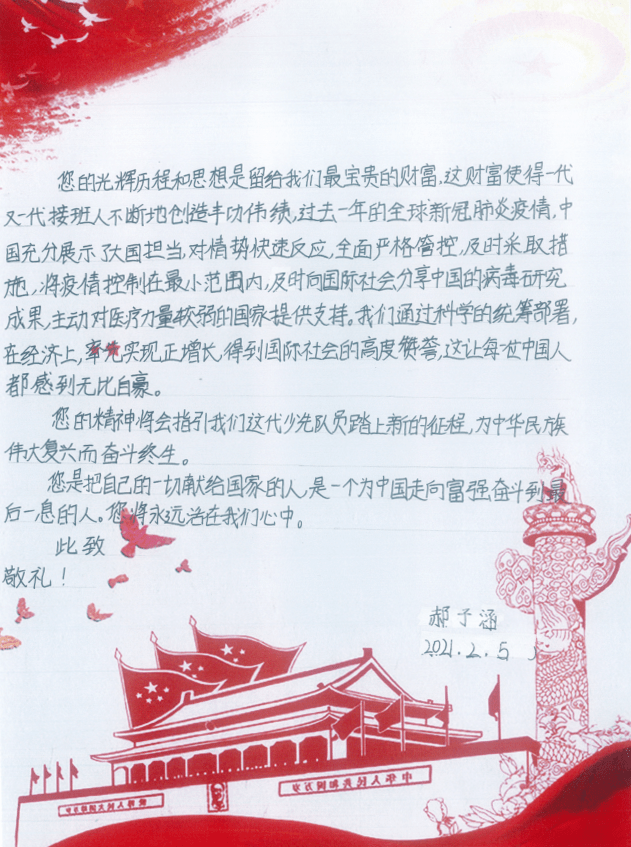 您的光辉历程和思想是留给我们最宝贵的财富.这财富使得一代
又一代接班人不断地创造丰功伟绩,过去一年的全球新冠肺炎疫情,中
国充分展示了大国担当,对情势快速反应,全面严格管控,及时采取措
施,将疫情控制在最小范围内,及时向国际社会分享中国的病毒研究
成果,主动对医疗力量较弱的国家提供支持。我们通过科学的统筹部署,
在经济上,率先实现正增长,得到国际社会的高度赞誉,这让每位中国人
都感到无比自豪。
您的精神将会指引我们这代少先队员踏上新的征程,为中华民族
伟大复兴而奋斗终生。
您是把自己的一切献给国家的人,是一个为中国走向富强奋斗到最
后一息的人。您将永远活在我们心中。
此致
敬礼!
郝予涵
2021.2.5